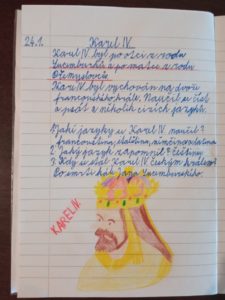 24.1. Karel IV.
Karel IV. byl po otci z rodu
Lucemburků a po matce z rodu
Přemyslovců.
Karel IV. byl vychován na dvoře
francouzského krále. Naučil se číst
a psát v několika cizích jazycích.
1. Jaké jazyky se Karel IV. naučil?
francouzština, italština, němčina, latina
2. Jaký jazyk zapomněl? Češtinu
3. Kdy se stal Karel IV. českým králem?
Po smrti krále Jana Lucemburského.
KAREL IV.